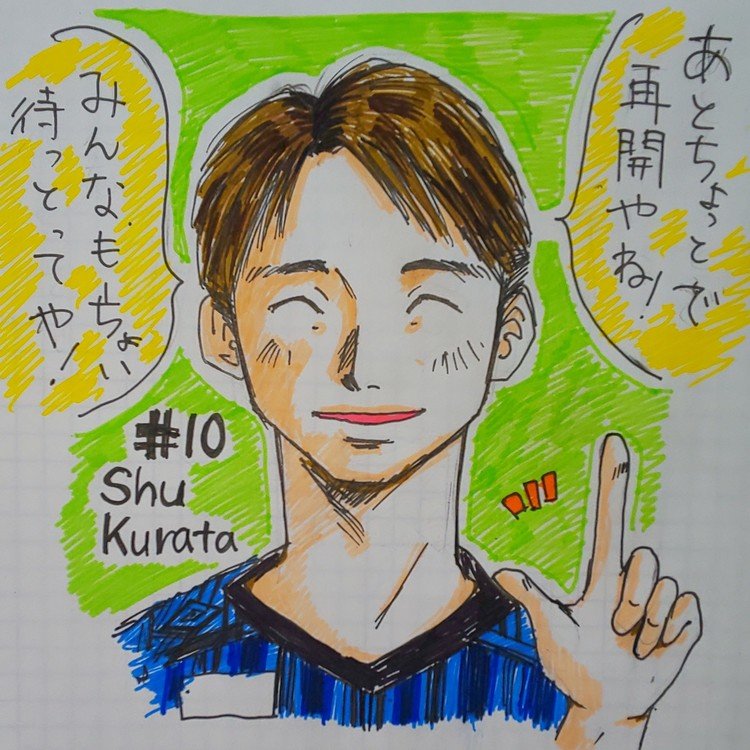 あとちょっとで
再開やね!
みんなもちょい
待っとってや!
#10
Shu
Kurata